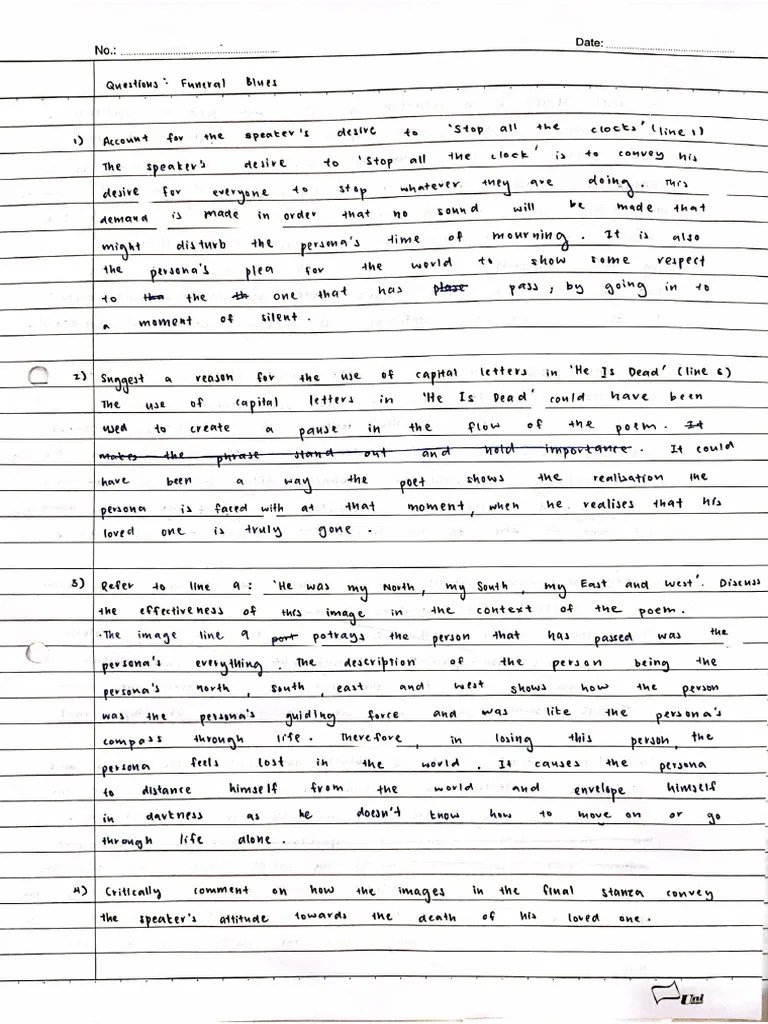 No.:
Date:
Questions: Funeral Blues
1) Account for the speaker's desire to 'Stop all the clocks' (line 1)
The speaker's desire to 'Stop all the clock' is to convey his
desire for everyone to stop whatever they are doing. This
demand is made in order that no sound will be made that
might disturb the persona's time of mourning. It is also
the persona's plea for the world to show some respect
to the the th one that has please pass, by going in to
a moment of silent.
2) Suggest a reason for the use of capital letters in 'He Is Dead' (line 6)
The use of capital letters in 'He Is Dead' could have been
used to create a pause in the flow of the poem. It
makes the phrase stand out and hold importance. It could
have been a way the poet shows the realisation the
persona is faced with at that moment, when he realises that his
loved one is truly gone.
3) Refer to line 9: 'He was my North, my South, my East and West'. Discuss
the effectiveness of this image in the context of the poem.
·The image line 9 port potrays the person that has passed was the
persona's everything. The description of the person being the
persona's north, south, east and west shows how the person
was the persona's guiding force and was like the persona's
compass through life. Therefore, in losing this person, the
persona feels lost in the world. It causes the persona
to distance himself from the world and envelope himself
in darkness as he doesn't know how to move on or go
through life alone.
4) Critically comment on how the images in the final stanza convey
the speaker's attitude towards the death of his loved one.
Uni